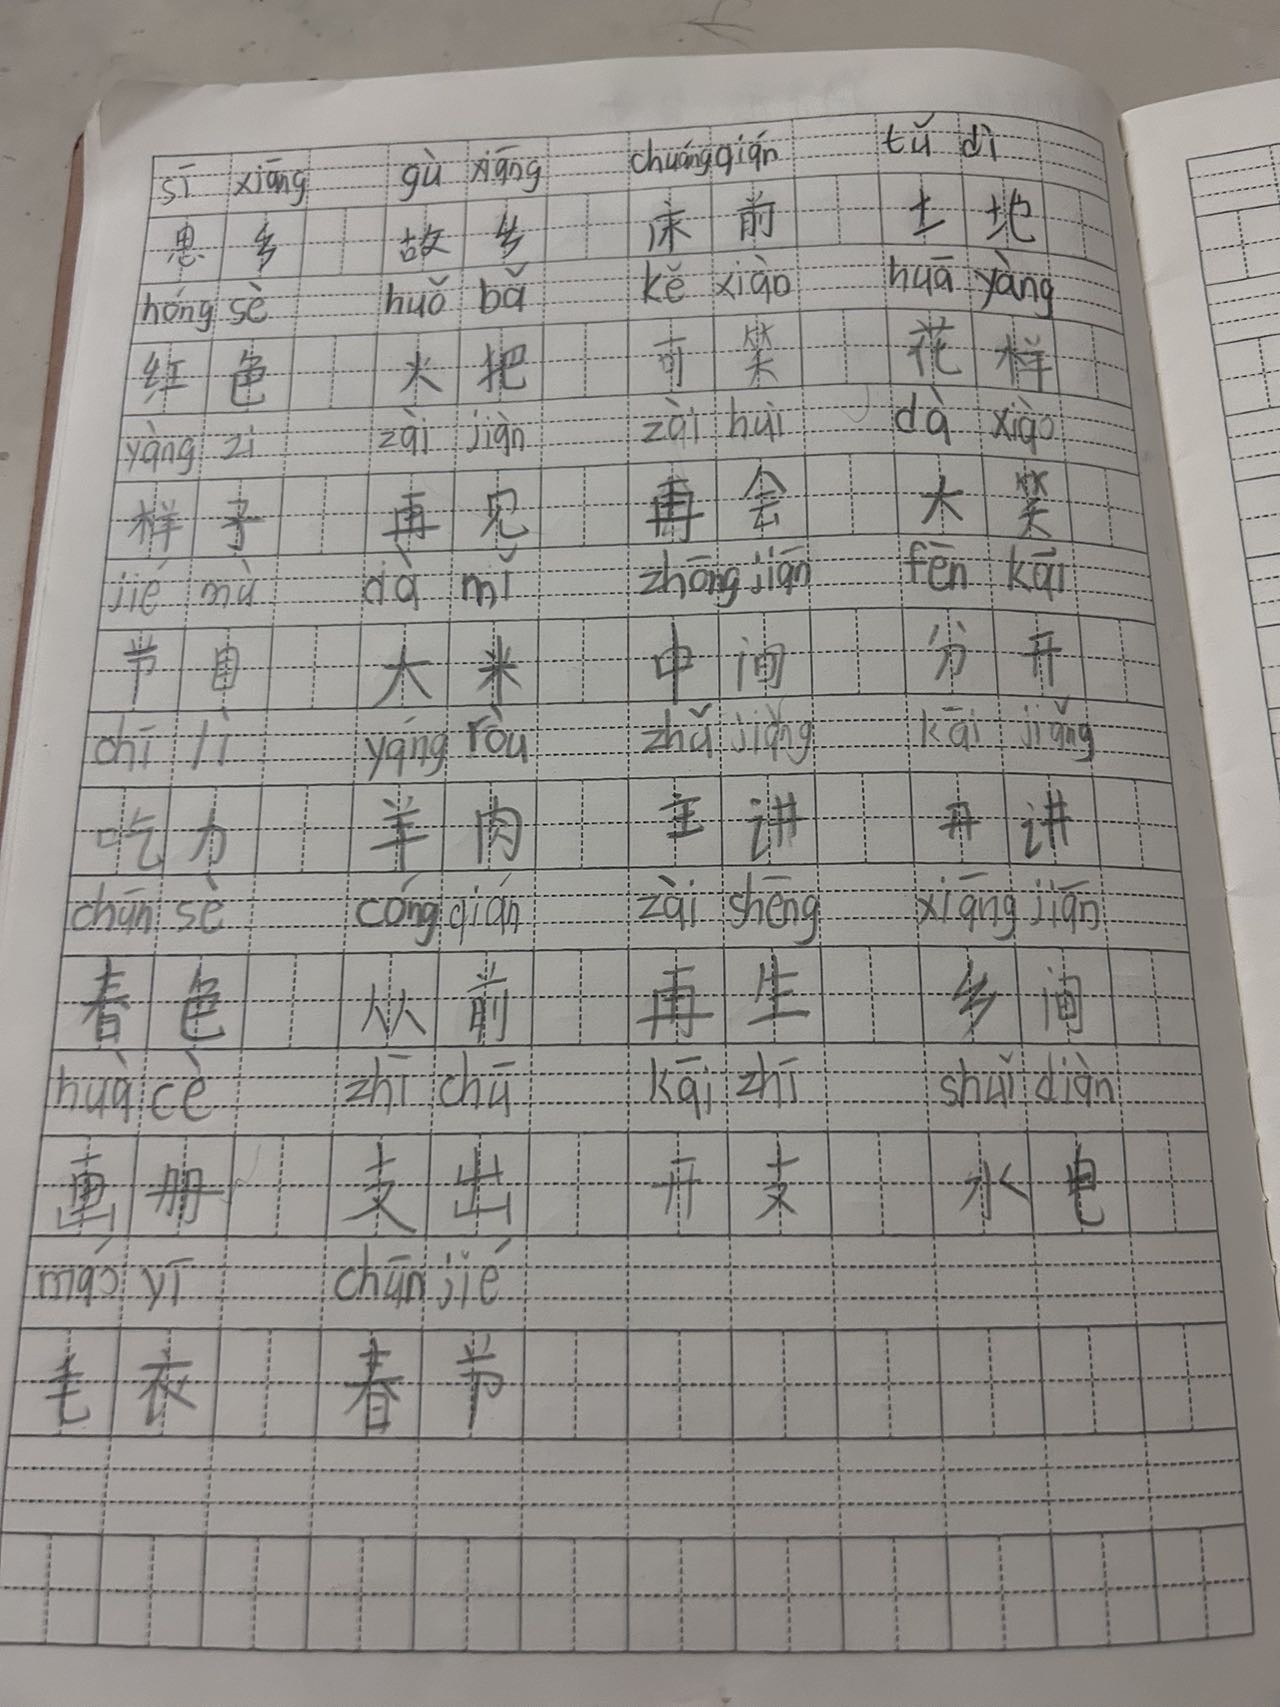 sī xiāng gù xiāng chuáng qián tǔ dì
思乡 故乡 床前 土地
hóng sè huǒ bǎ kě xiào huā yàng
红色 火把 可笑 花样
yàng zi zài jiàn zài huì dà xiào
样子 再见 再会 大笑
jié mù dà mǐ zhōng jiān fēn kāi
节目 大米 中间 分开
chī lì yáng ròu zhǔ jiǎng kāi jiǎng
吃力 羊肉 主讲 开讲
chūn sè cóng qián zài shēng xiāng jiān
春色 从前 再生 乡间
huà cè zhī chū kāi zhī shuǐ diàn
画册 支出 开支 水电
máo yī chūn jié
毛衣 春节